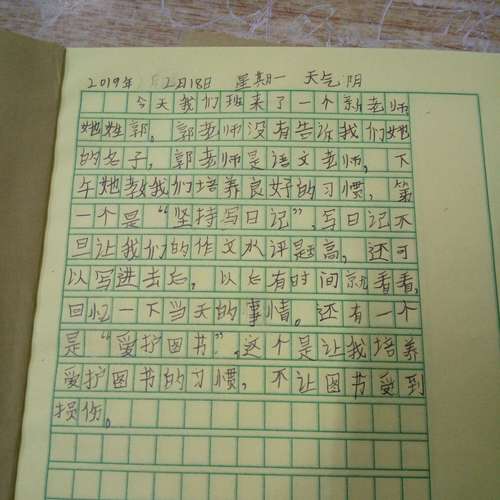 2019年2月18日 星期一 天气阴
今天我们班来了一个新老师
她姓郭。郭老师没有告诉我们她
的名子,郭老师是语文老师,下
午她教我们培养良好的习惯,第
一个是“坚持写日记”,写日记不
旦让我们的作文水评题高,还可
以写进去后,以后有时间就看看,
回忆一下当天的事情。还有一个
是“爱护图书”,这个是让我培养
爱护图书的习惯,不让图书受到
损伤。